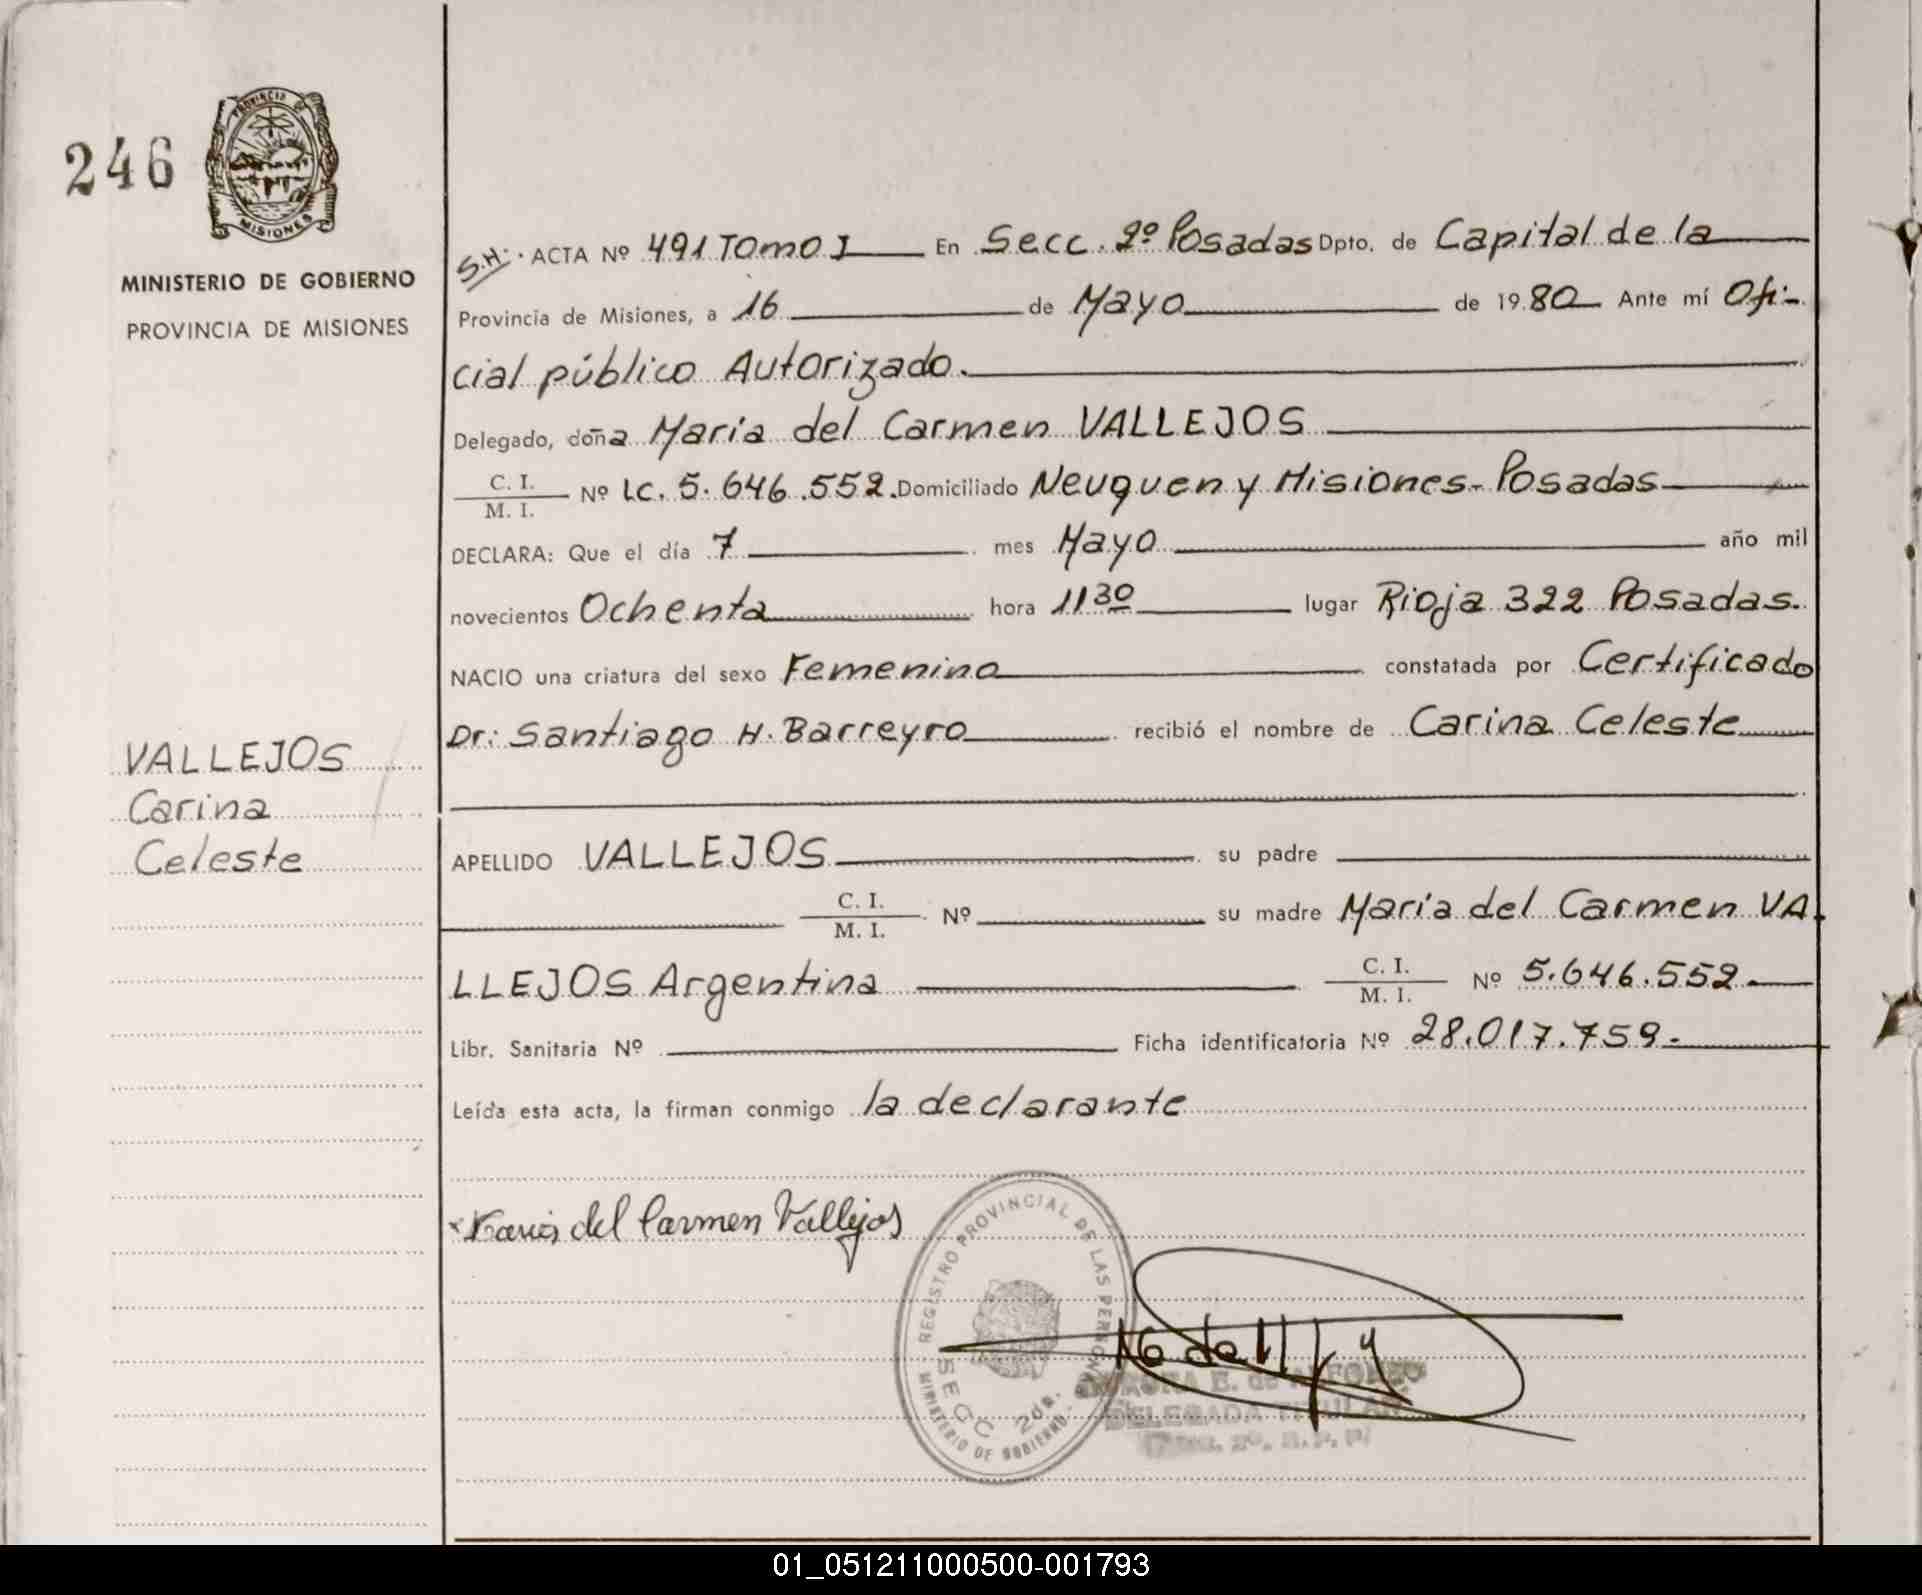 246
PROVINCIA DE
MISIONES
MINISTERIO DE GOBIERNO
PROVINCIA DE MISIONES
S.H: ACTA Nº 491 TOMO I En Secc. 2º Posadas Dpto. de Capital de la
Provincia de Misiones, a 16 de Mayo de 1980 Ante mí Ofi-
cial público Autorizado.
Delegado, doña María del Carmen VALLEJOS
C. I.
M. I. Nº LC. 5.646.552. Domiciliado Neuquen y Misiones - Posadas
DECLARA: Que el día 7 mes Mayo año mil
novecientos Ochenta hora 11 30 lugar Rioja 322 Posadas.
NACIO una criatura del sexo Femenino constatada por Certificado
Dr: Santiago H. Barreyro recibió el nombre de Carina Celeste
VALLEJOS
Carina
Celeste
APELLIDO VALLEJOS su padre
C. I.
M. I. Nº su madre María del Carmen VA
LLEJOS Argentina C. I.
M. I. Nº 5.646.552
Libr. Sanitaria Nº Ficha identificatoria Nº 28.017.759.-
Leída esta acta, la firman conmigo la declarante
x María del Carmen Vallejos
REGISTRO PROVINCIAL DE LAS PERSONAS
SECC 2da.
MINISTERIO DE GOBIERNO
E. de ALFONSO
DELEGADA TITULAR
01_051211000500-001793